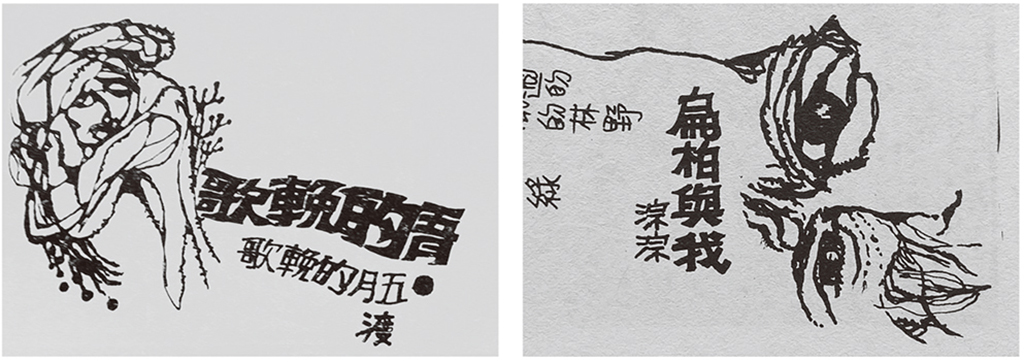 的輓歌
五月的輓歌
渡
扁柏與我
淙淙
的迴
野林的
綠